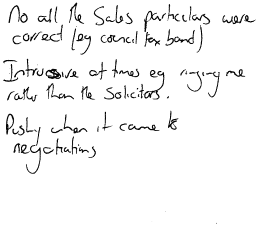 No all the Sales particulars were
correct (eg council tax band)
Intrusive at times eg ringing me
rather than the Solicitors.
Pushy when it came to
negotiations